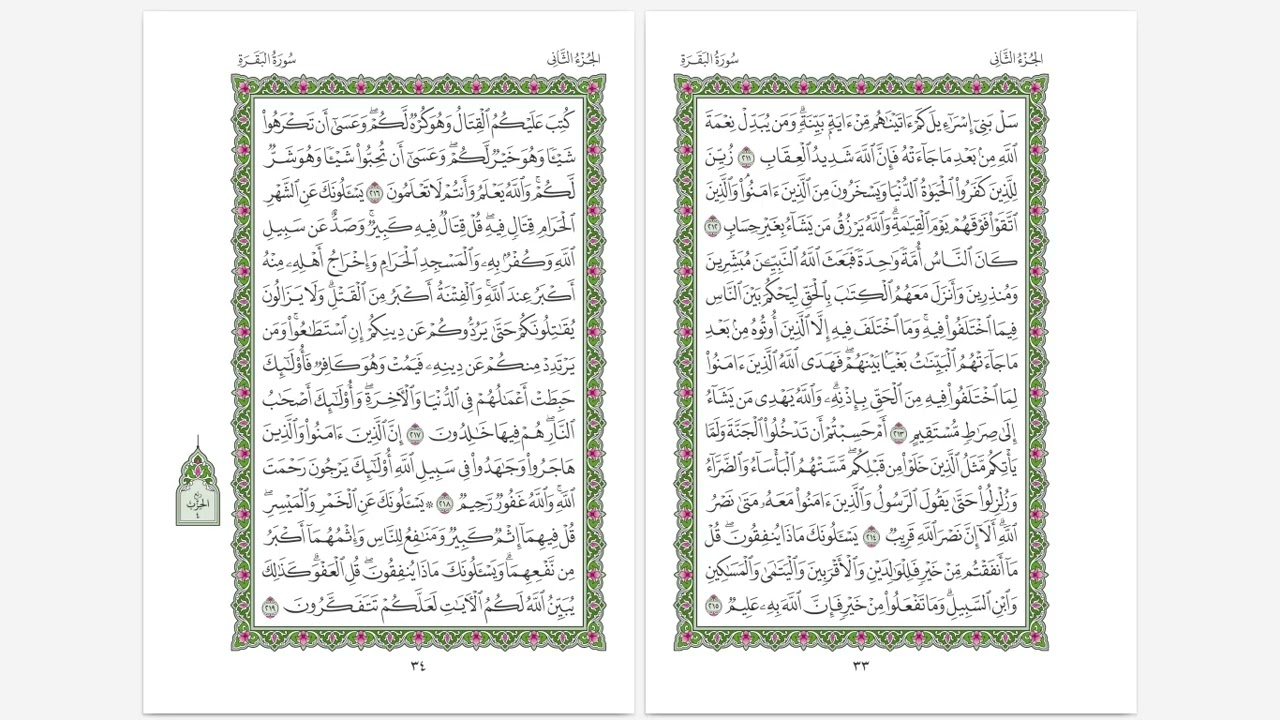 الجُزْءُ الثَّانِى
سُورَةُ البَقَرَةِ
سَلْ بَنِىٓ إِسْرَٰٓءِيلَ كَمْ ءَاتَيْنَٰهُم مِّنْ ءَايَةٍۭ بَيِّنَةٍۗ وَمَن يُبَدِّلْ نِعْمَةَ
ٱللَّهِ مِنۢ بَعْدِ مَا جَآءَتْهُ فَإِنَّ ٱللَّهَ شَدِيدُ ٱلْعِقَابِ ٢١١ زُيِّنَ
لِلَّذِينَ كَفَرُوا۟ ٱلْحَيَوٰةُ ٱلدُّنْيَا وَيَسْخَرُونَ مِنَ ٱلَّذِينَ ءَامَنُوا۟ۘ وَٱلَّذِينَ
ٱتَّقَوْا۟ فَوْقَهُمْ يَوْمَ ٱلْقِيَٰمَةِۗ وَٱللَّهُ يَرْزُقُ مَن يَشَآءُ بِغَيْرِ حِسَابٍ ٢١٢
كَانَ ٱلنَّاسُ أُمَّةً وَٰحِدَةً فَبَعَثَ ٱللَّهُ ٱلنَّبِيِّـۧنَ مُبَشِّرِينَ
وَمُنذِرِينَ وَأَنزَلَ مَعَهُمُ ٱلْكِتَٰبَ بِٱلْحَقِّ لِيَحْكُمَ بَيْنَ ٱلنَّاسِ
فِيمَا ٱخْتَلَفُوا۟ فِيهِۚ وَمَا ٱخْتَلَفَ فِيهِ إِلَّا ٱلَّذِينَ أُوتُوهُ مِنۢ بَعْدِ
مَا جَآءَتْهُمُ ٱلْبَيِّنَٰتُ بَغْيًۢا بَيْنَهُمْۖ فَهَدَى ٱللَّهُ ٱلَّذِينَ ءَامَنُوا۟
لِمَا ٱخْتَلَفُوا۟ فِيهِ مِنَ ٱلْحَقِّ بِإِذْنِهِۦۗ وَٱللَّهُ يَهْدِى مَن يَشَآءُ
إِلَىٰ صِرَٰطٍ مُّسْتَقِيمٍ ٢١٣ أَمْ حَسِبْتُمْ أَن تَدْخُلُوا۟ ٱلْجَنَّةَ وَلَمَّا
يَأْتِكُم مَّثَلُ ٱلَّذِينَ خَلَوْا۟ مِن قَبْلِكُمۖ مَّسَّتْهُمُ ٱلْبَأْسَآءُ وَٱلضَّرَّآءُ
وَزُلْزِلُوا۟ حَتَّىٰ يَقُولَ ٱلرَّسُولُ وَٱلَّذِينَ ءَامَنُوا۟ مَعَهُۥ مَتَىٰ نَصْرُ
ٱللَّهِۗ أَلَآ إِنَّ نَصْرَ ٱللَّهِ قَرِيبٌ ٢١٤ يَسْـَٔلُونَكَ مَاذَا يُنفِقُونَۖ قُلْ
مَآ أَنفَقْتُم مِّنْ خَيْرٍ فَلِلْوَٰلِدَيْنِ وَٱلْأَقْرَبِينَ وَٱلْيَتَٰمَىٰ وَٱلْمَسَٰكِينِ
وَٱبْنِ ٱلسَّبِيلِۗ وَمَا تَفْعَلُوا۟ مِنْ خَيْرٍ فَإِنَّ ٱللَّهَ بِهِۦ عَلِيمٌ ٢١٥
٣٣
الجُزْءُ الثَّانِى
سُورَةُ البَقَرَةِ
كُتِبَ عَلَيْكُمُ ٱلْقِتَالُ وَهُوَ كُرْهٌ لَّكُمْۖ وَعَسَىٰٓ أَن تَكْرَهُوا۟
شَيْـًٔا وَهُوَ خَيْرٌ لَّكُمْۖ وَعَسَىٰٓ أَن تُحِبُّوا۟ شَيْـًٔا وَهُوَ شَرٌّ
لَّكُمْۗ وَٱللَّهُ يَعْلَمُ وَأَنتُمْ لَا تَعْلَمُونَ ٢١٦ يَسْـَٔلُونَكَ عَنِ ٱلشَّهْرِ
ٱلْحَرَامِ قِتَالٍ فِيهِۖ قُلْ قِتَالٌ فِيهِ كَبِيرٌۚ وَصَدٌّ عَن سَبِيلِ
ٱللَّهِ وَكُفْرٌۢ بِهِۦ وَٱلْمَسْجِدِ ٱلْحَرَامِ وَإِخْرَاجُ أَهْلِهِۦ مِنْهُ
أَكْبَرُ عِندَ ٱللَّهِۚ وَٱلْفِتْنَةُ أَكْبَرُ مِنَ ٱلْقَتْلِۗ وَلَا يَزَالُونَ
يُقَٰتِلُونَكُمْ حَتَّىٰ يَرُدُّوكُمْ عَن دِينِكُمْ إِنِ ٱسْتَطَٰعُوا۟ۚ وَمَن
يَرْتَدِدْ مِنكُمْ عَن دِينِهِۦ فَيَمُتْ وَهُوَ كَافِرٌ فَأُو۟لَٰٓئِكَ
حَبِطَتْ أَعْمَٰلُهُمْ فِى ٱلدُّنْيَا وَٱلْـَٔاخِرَةِۖ وَأُو۟لَٰٓئِكَ أَصْحَٰبُ
ٱلنَّارِۖ هُمْ فِيهَا خَٰلِدُونَ ٢١٧ إِنَّ ٱلَّذِينَ ءَامَنُوا۟ وَٱلَّذِينَ
هَاجَرُوا۟ وَجَٰهَدُوا۟ فِى سَبِيلِ ٱللَّهِ أُو۟لَٰٓئِكَ يَرْجُونَ رَحْمَتَ
ٱللَّهِۚ وَٱللَّهُ غَفُورٌ رَّحِيمٌ ٢١٨ ۞ يَسْـَٔلُونَكَ عَنِ ٱلْخَمْرِ وَٱلْمَيْسِرِۖ
قُلْ فِيهِمَآ إِثْمٌ كَبِيرٌ وَمَنَٰفِعُ لِلنَّاسِ وَإِثْمُهُمَآ أَكْبَرُ
مِن نَّفْعِهِمَاۗ وَيَسْـَٔلُونَكَ مَاذَا يُنفِقُونَۖ قُلِ ٱلْعَفْوَۗ كَذَٰلِكَ
يُبَيِّنُ ٱللَّهُ لَكُمُ ٱلْـَٔايَٰتِ لَعَلَّكُمْ تَتَفَكَّرُونَ ٢١٩
ربع
الحزب
٤
٣٤